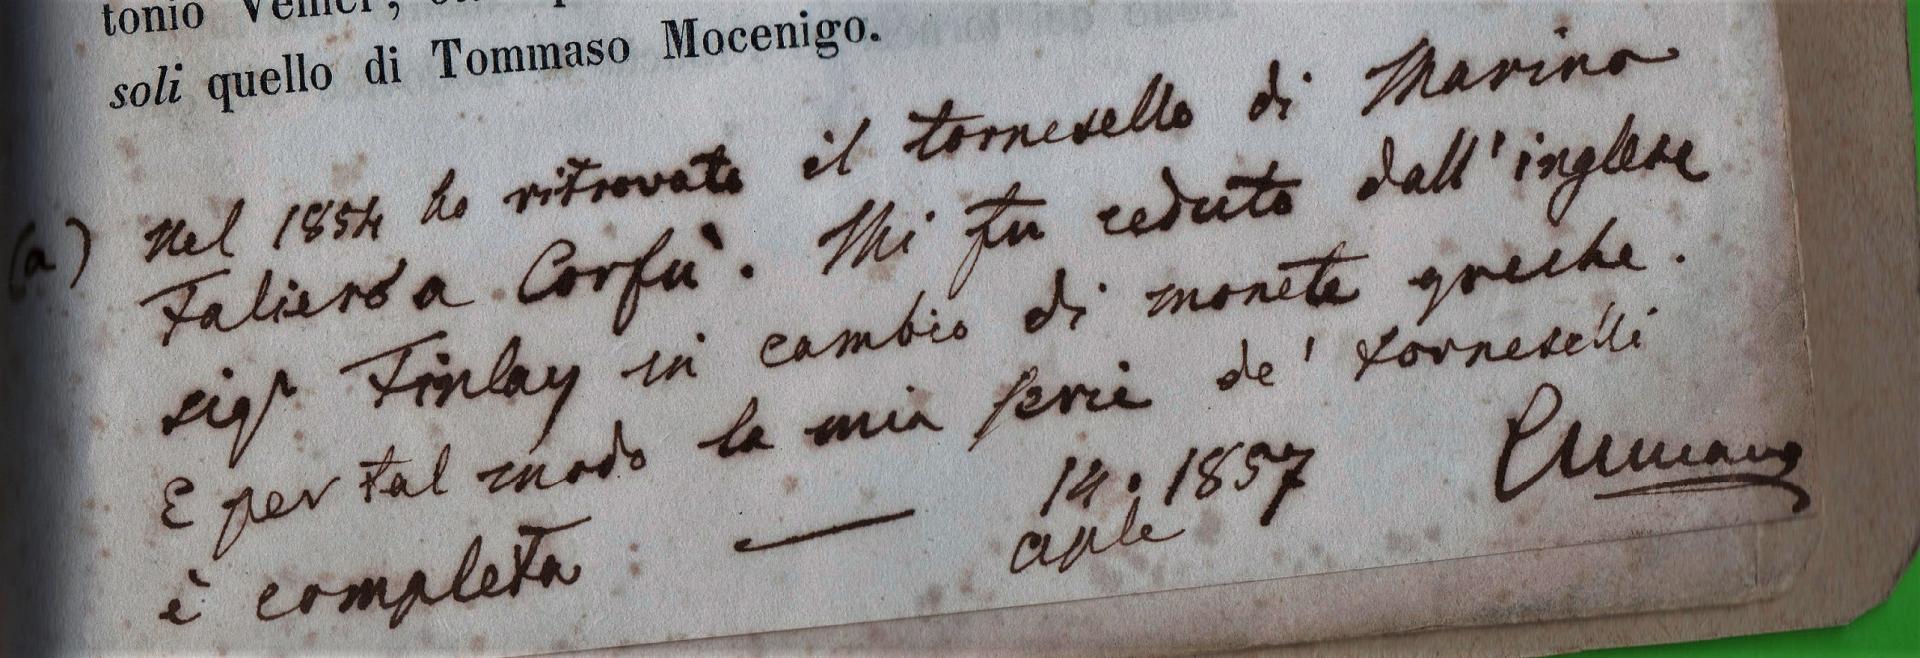 tonio Venier,
soli quello di Tommaso Mocenigo.
(a) Nel 1854 ho ritrovato il tornesello di Marino
Faliero a Corfù. Mi fu ceduto dall'inglese
sigr Finlay in cambio di monete greche.
E per tal modo la mia serie de' torneselli
è completa — 14. 1857
aple